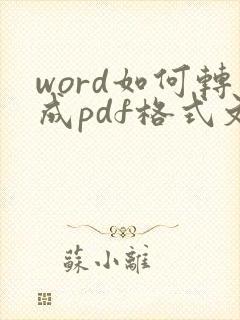 word如何轉
成pdf格式文
蘇小離